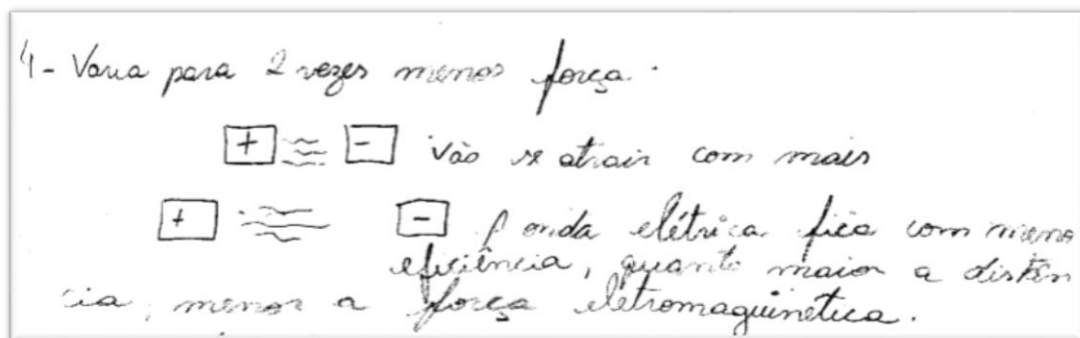 4- Varia para 2 vezes menos força.
+ - vão se atrair com mais
+ - A onda elétrica fica com menos
eficiência, quanto maior a distân
cia, menor a força eletromaguinética.